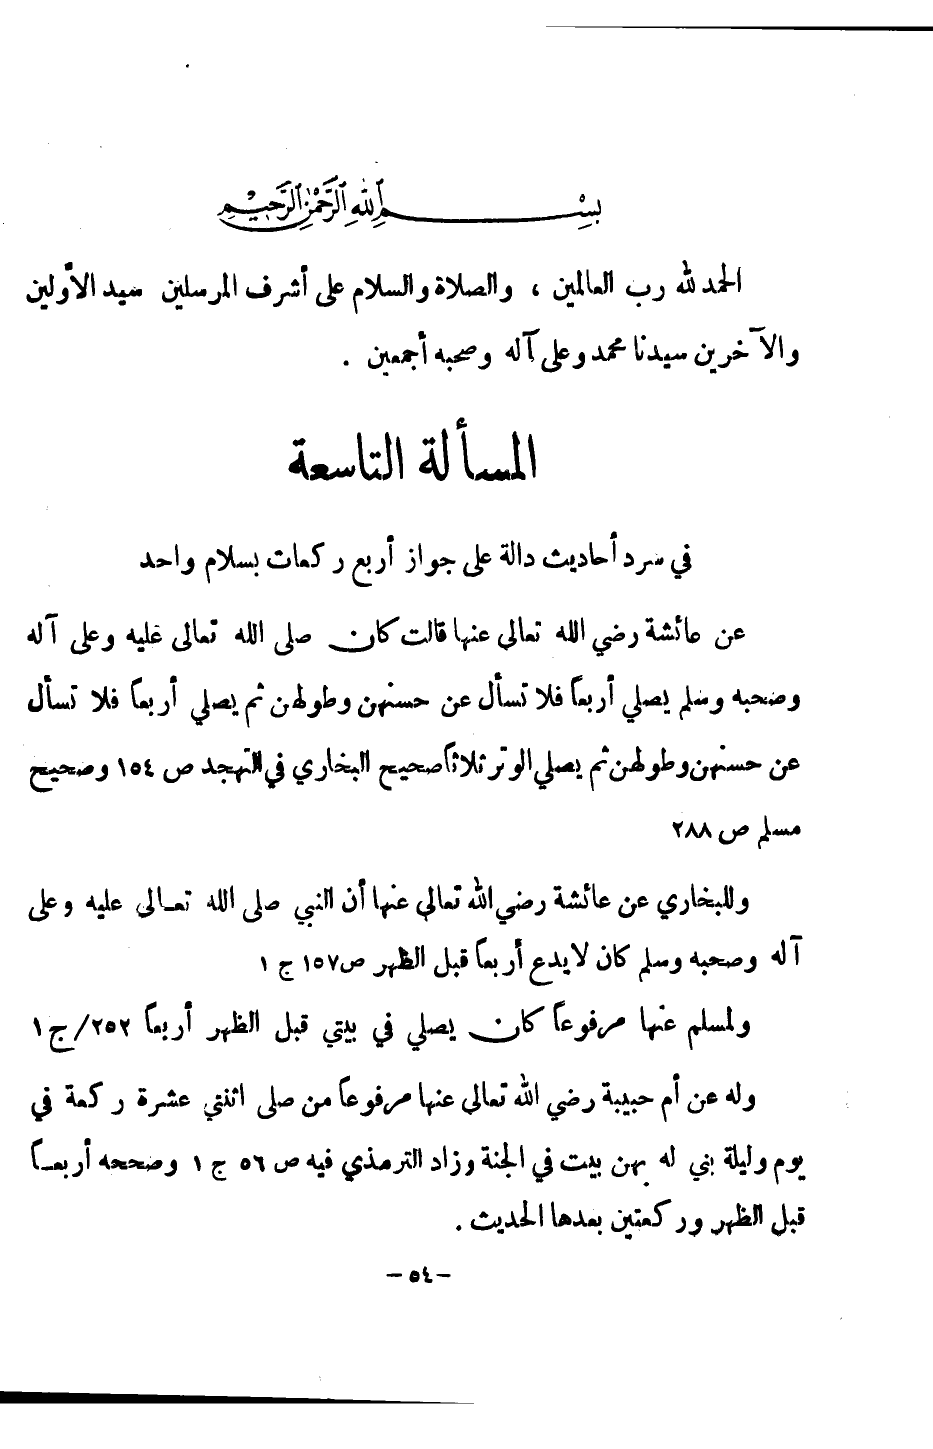 بسم الله الرحمن الرحيم
الحمد لله رب العالمين ، والصلاة والسلام على أشرف المرسلين سيد الأولين
والآخرين سيدنا محمد وعلى آله وصحبه أجمعين .
المسألة التاسعة
في سرد أحاديث دالة على جواز أربع ركعات بسلام واحد
عن عائشة رضي الله تعالى عنها قالت كان صلى الله تعالى عليه وعلى آله
وصحبه وسلم يصلي أربعاً فلا تسأل عن حسنهن وطولهن ثم يصلي أربعاً فلا تسأل
عن حسنهن وطولهن ثم يصلي الوتر ثلاثاً صحيح البخاري في التهجد ص ١٥٤ وصحيح
مسلم ص ٢٨٨
وللبخاري عن عائشة رضي الله تعالى عنها أن النبي صلى الله تعالى عليه وعلى
آله وصحبه وسلم كان لا يدع أربعاً قبل الظهر ص ١٥٧ ج ١
ولمسلم عنها مرفوعاً كان يصلي في بيتي قبل الظهر أربعاً ٢٥٢/ج ١
وله عن أم حبيبة رضي الله تعالى عنها مرفوعاً من صلى اثنتي عشرة ركعة في
يوم وليلة بني له بهن بيت في الجنة وزاد الترمذي فيه ص ٥٦ ج ١ وصححه أربعاً
قبل الظهر وركعتين بعدها الحديث .
– ٥٤ –